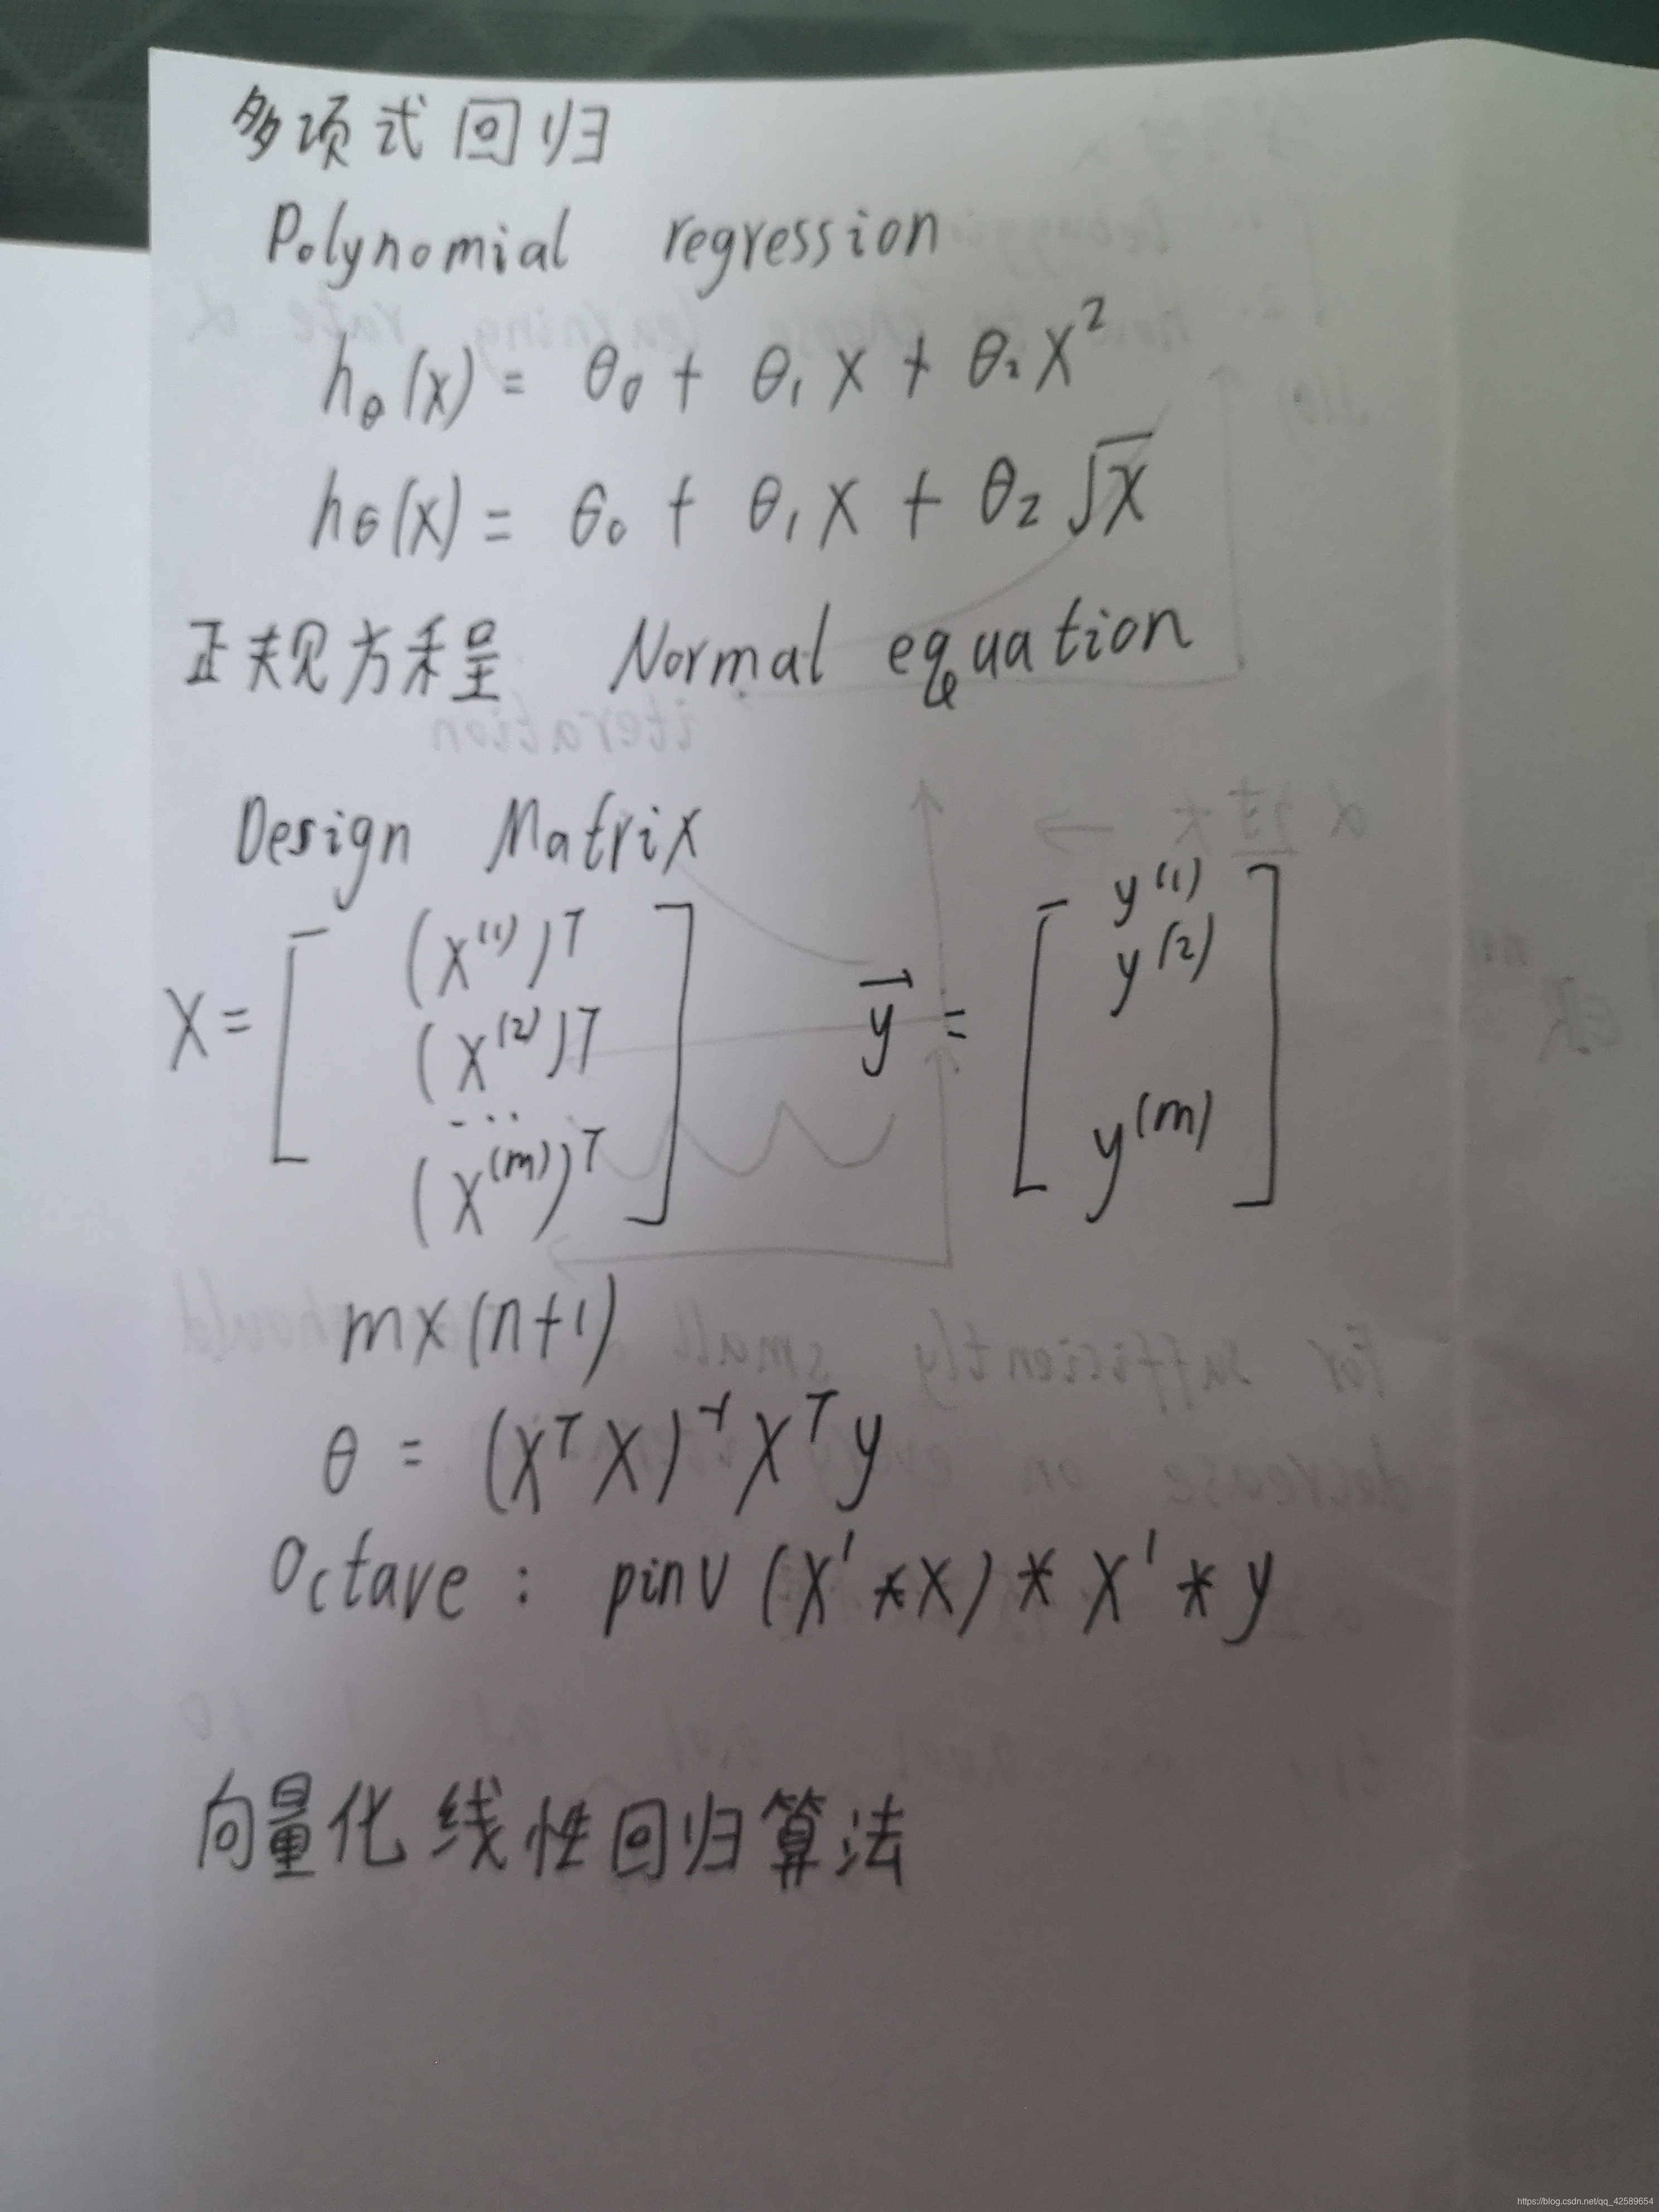 多项式回归
Polynomial regression
hθ(x) = θ0 + θ1 x + θ2 x²
hθ(x) = θ0 + θ1 x + θ2 √x
正规方程 Normal equation
Design Matrix
X = [ (x⁽¹⁾)ᵀ (x⁽²⁾)ᵀ ... (x⁽ᵐ⁾)ᵀ ] y⃗ = [ y⁽¹⁾ y⁽²⁾ y⁽ᵐ⁾ ]
m×(n+1)
θ = (XᵀX)⁻¹Xᵀy
Octave : pinv (X'*X) * X' * y
向量化线性回归算法
https://blog.csdn.net/qq_42589654